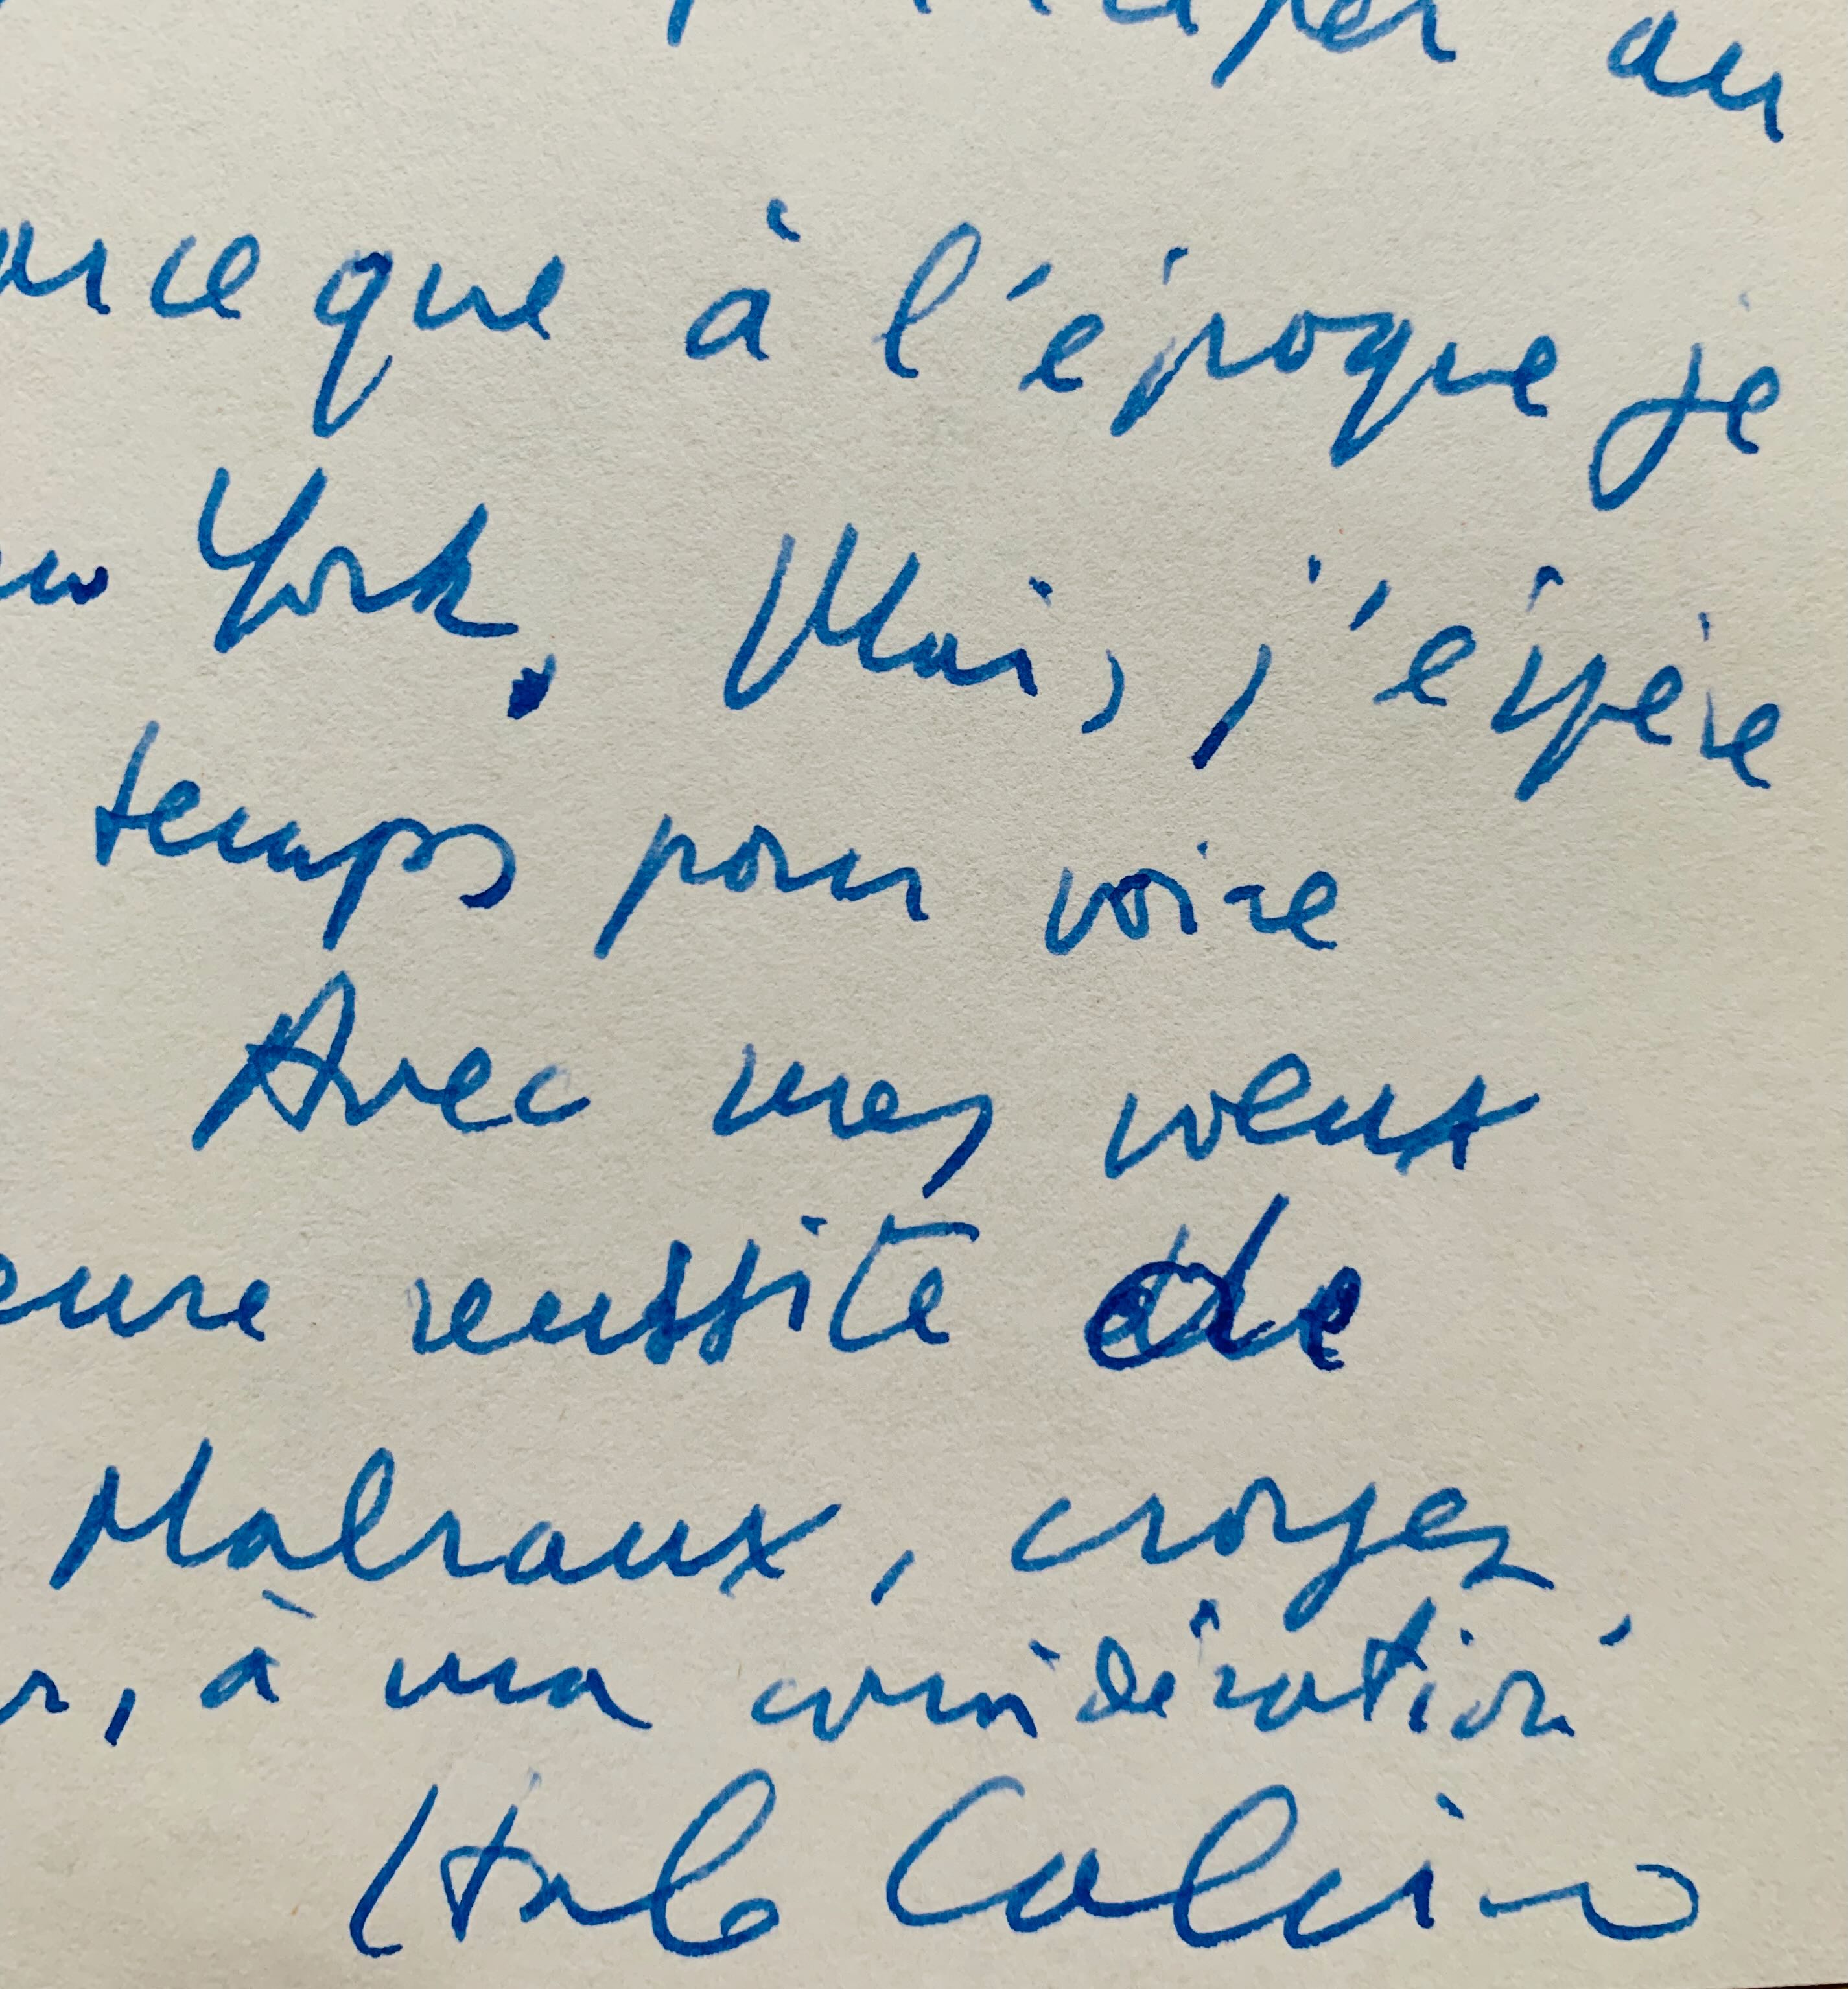 au
arce que à l'époque je
York. Mais, j'éspère
temps pour voire
Avec mes voeux
eure reussite de
Malraux, croyez,
r, à ma considération
Italo Calvino